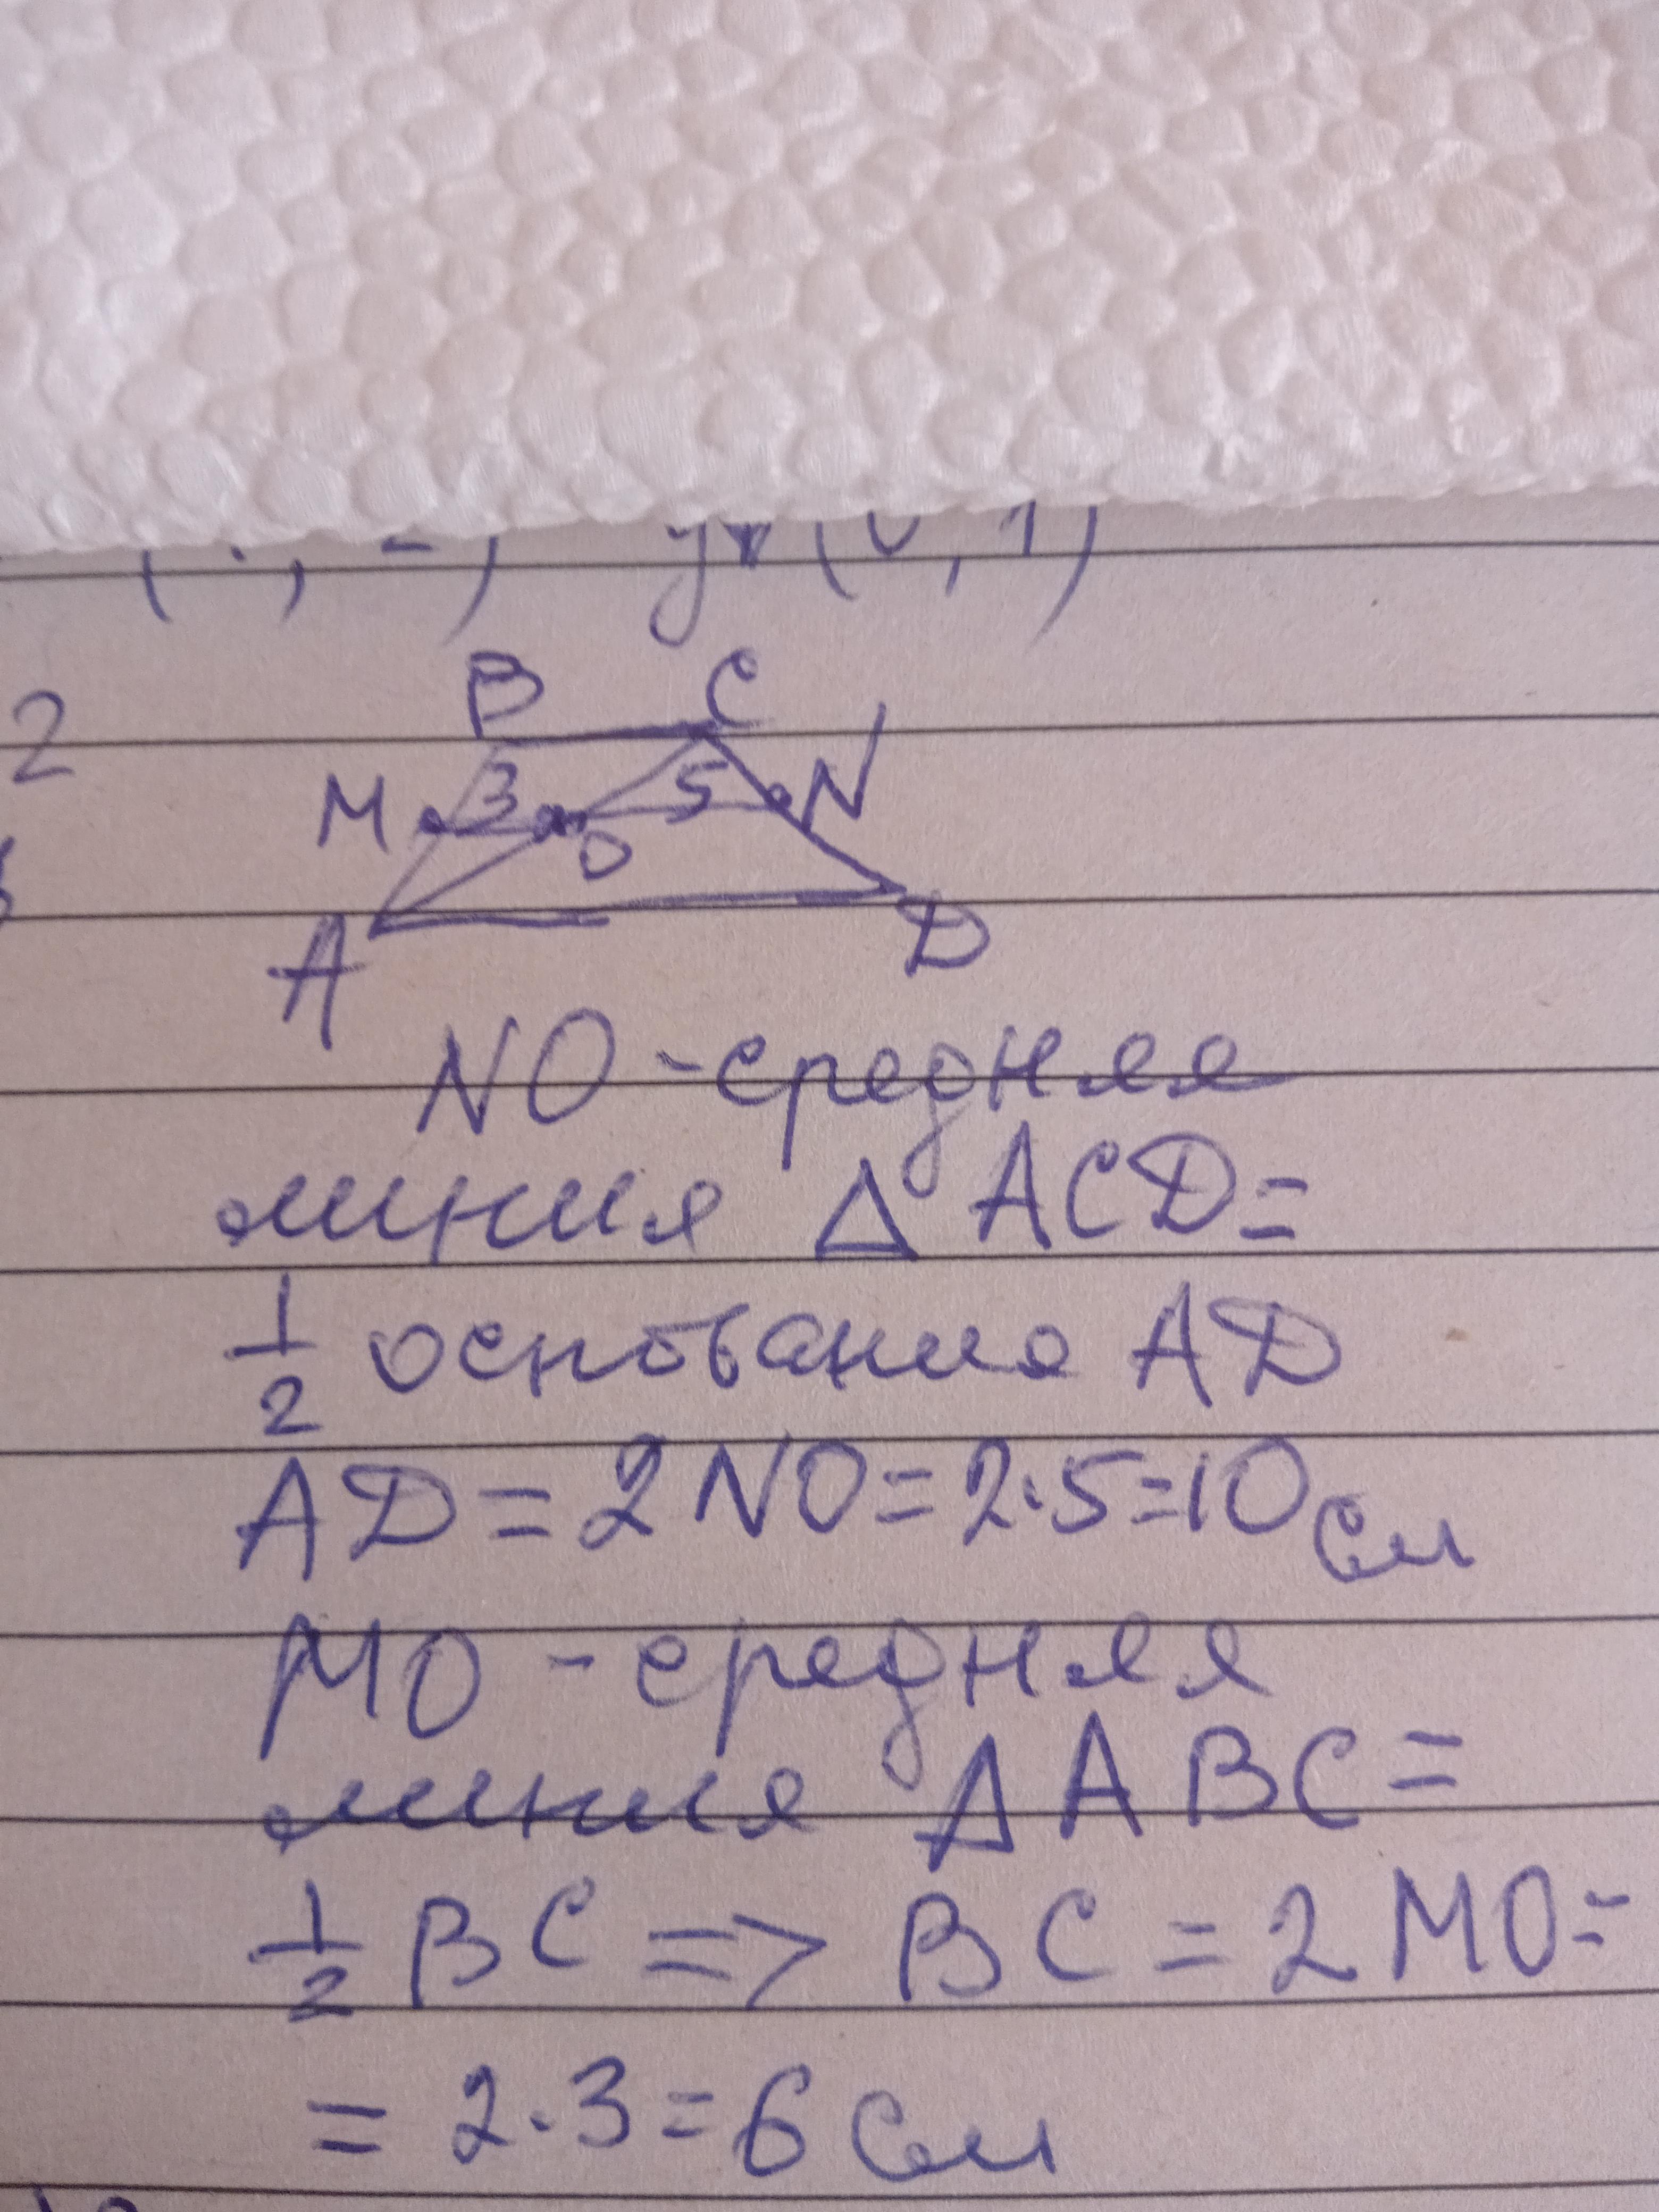 2
B C
M 3 5 N
O
A D
NO - средняя
линия Δ ACD =
1/2 основания AD
AD = 2NO = 2·5=10 см
MO - средняя
линия Δ ABC =
1/2 BC => BC = 2 MO =
= 2·3 = 6 см